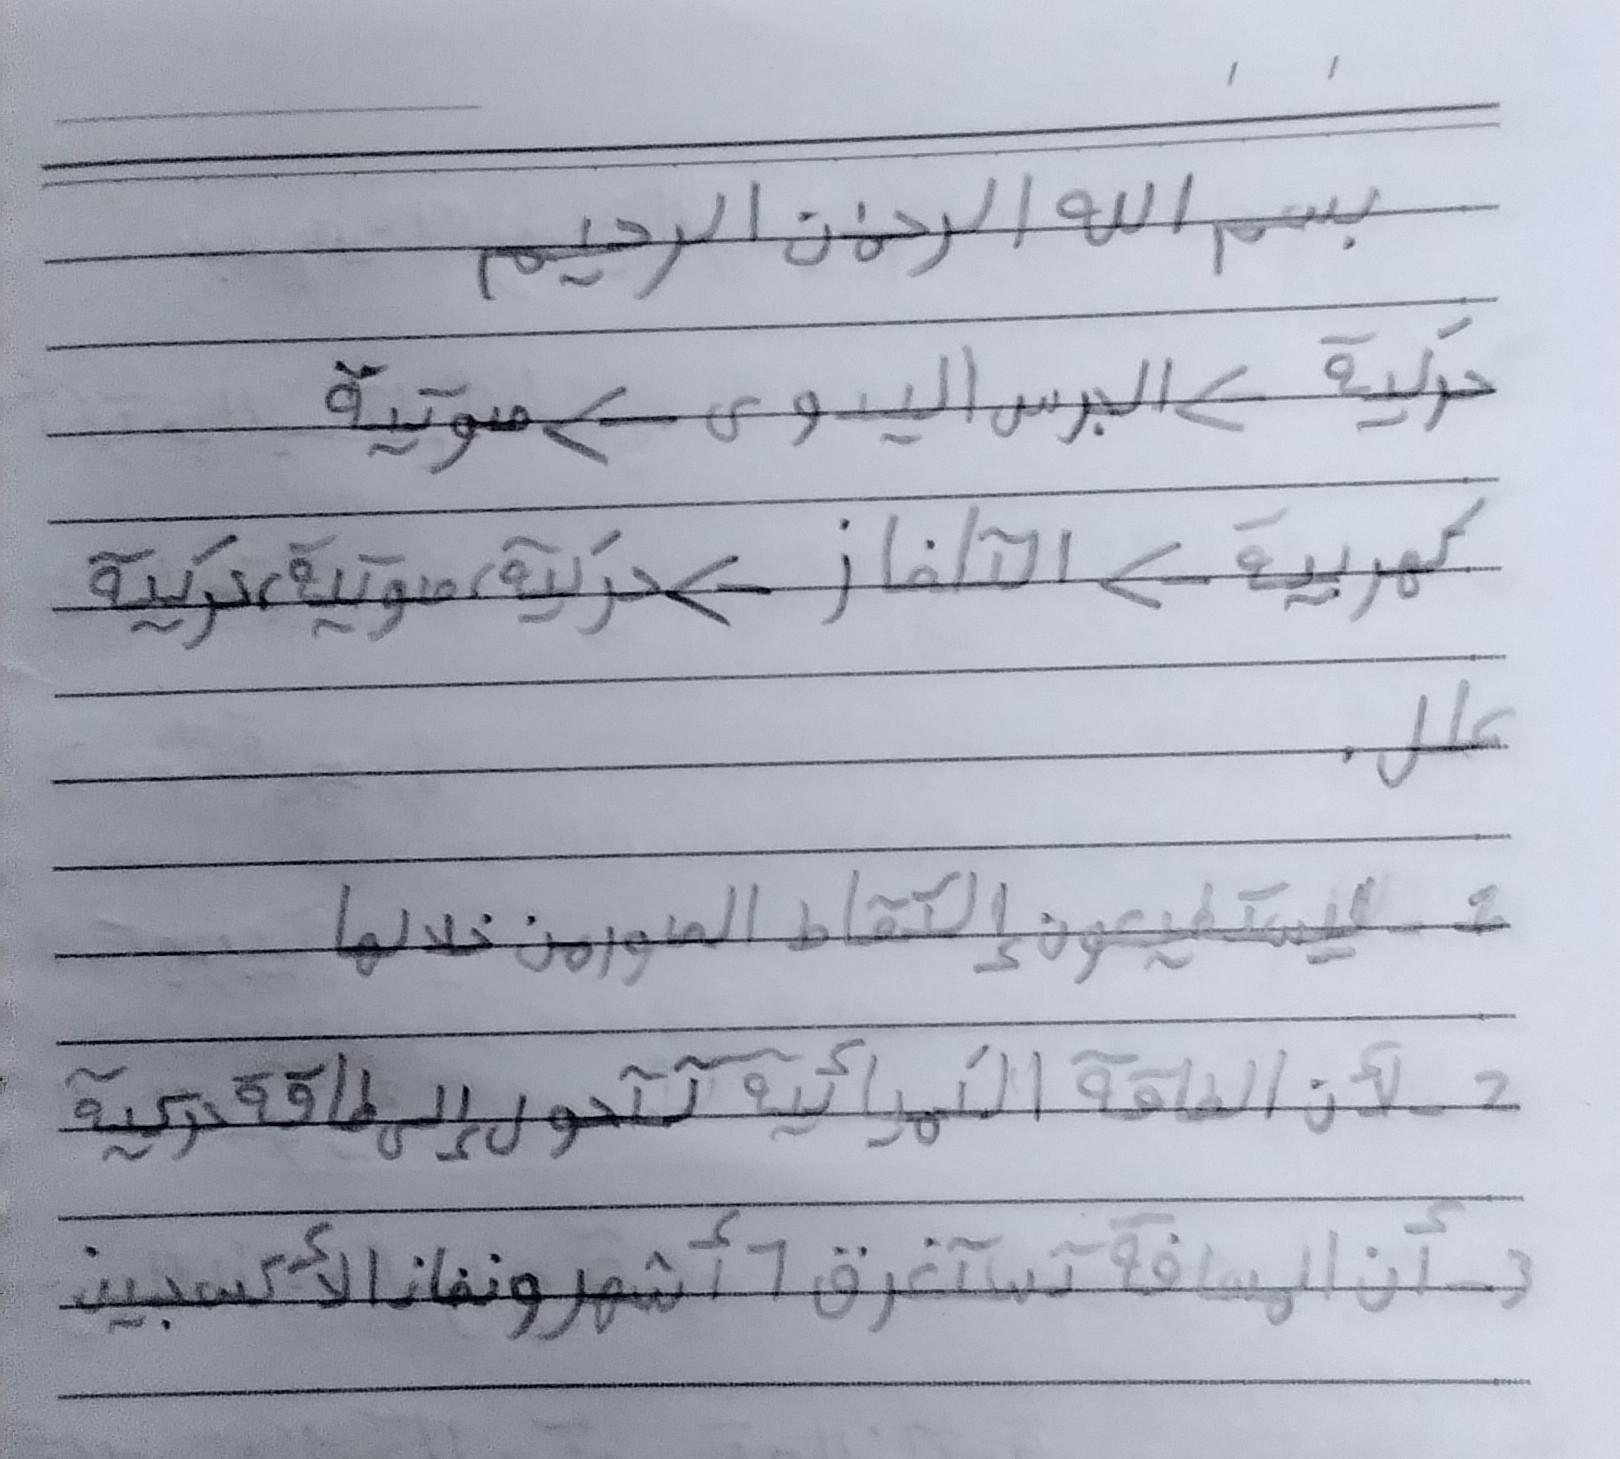 بسم الله الرحمن الرحيم
حركية <- الجرس اليدوى <- صوتية
كهربية <- التلفاز <- حركية، صوتية، حركية
علل.
1 - ليستطيعون إلتقاط الصور من خلالها
2 - لأن الطاقة الكهربائية تتحول إلى طاقة حركية
3 - أن المسافة تستغرق 6 أشهر ونفاذ الأكسجين